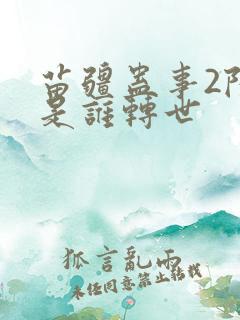 苗疆蛊事2陆
是誰轉世
狐言亂雨
未经同意禁止转载